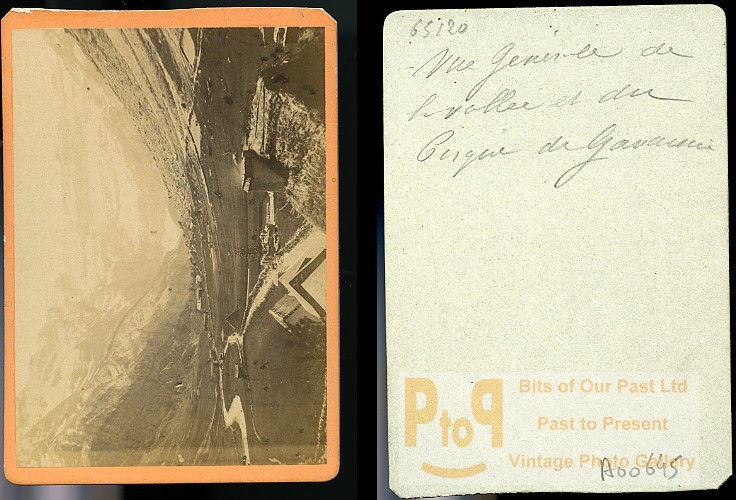 65120
Vue Générale de
la vallée et du
Cirque de Gavarnie
PtoP
Bits of Our Past Ltd
Past to Present
Vintage Photo Gallery
A00645